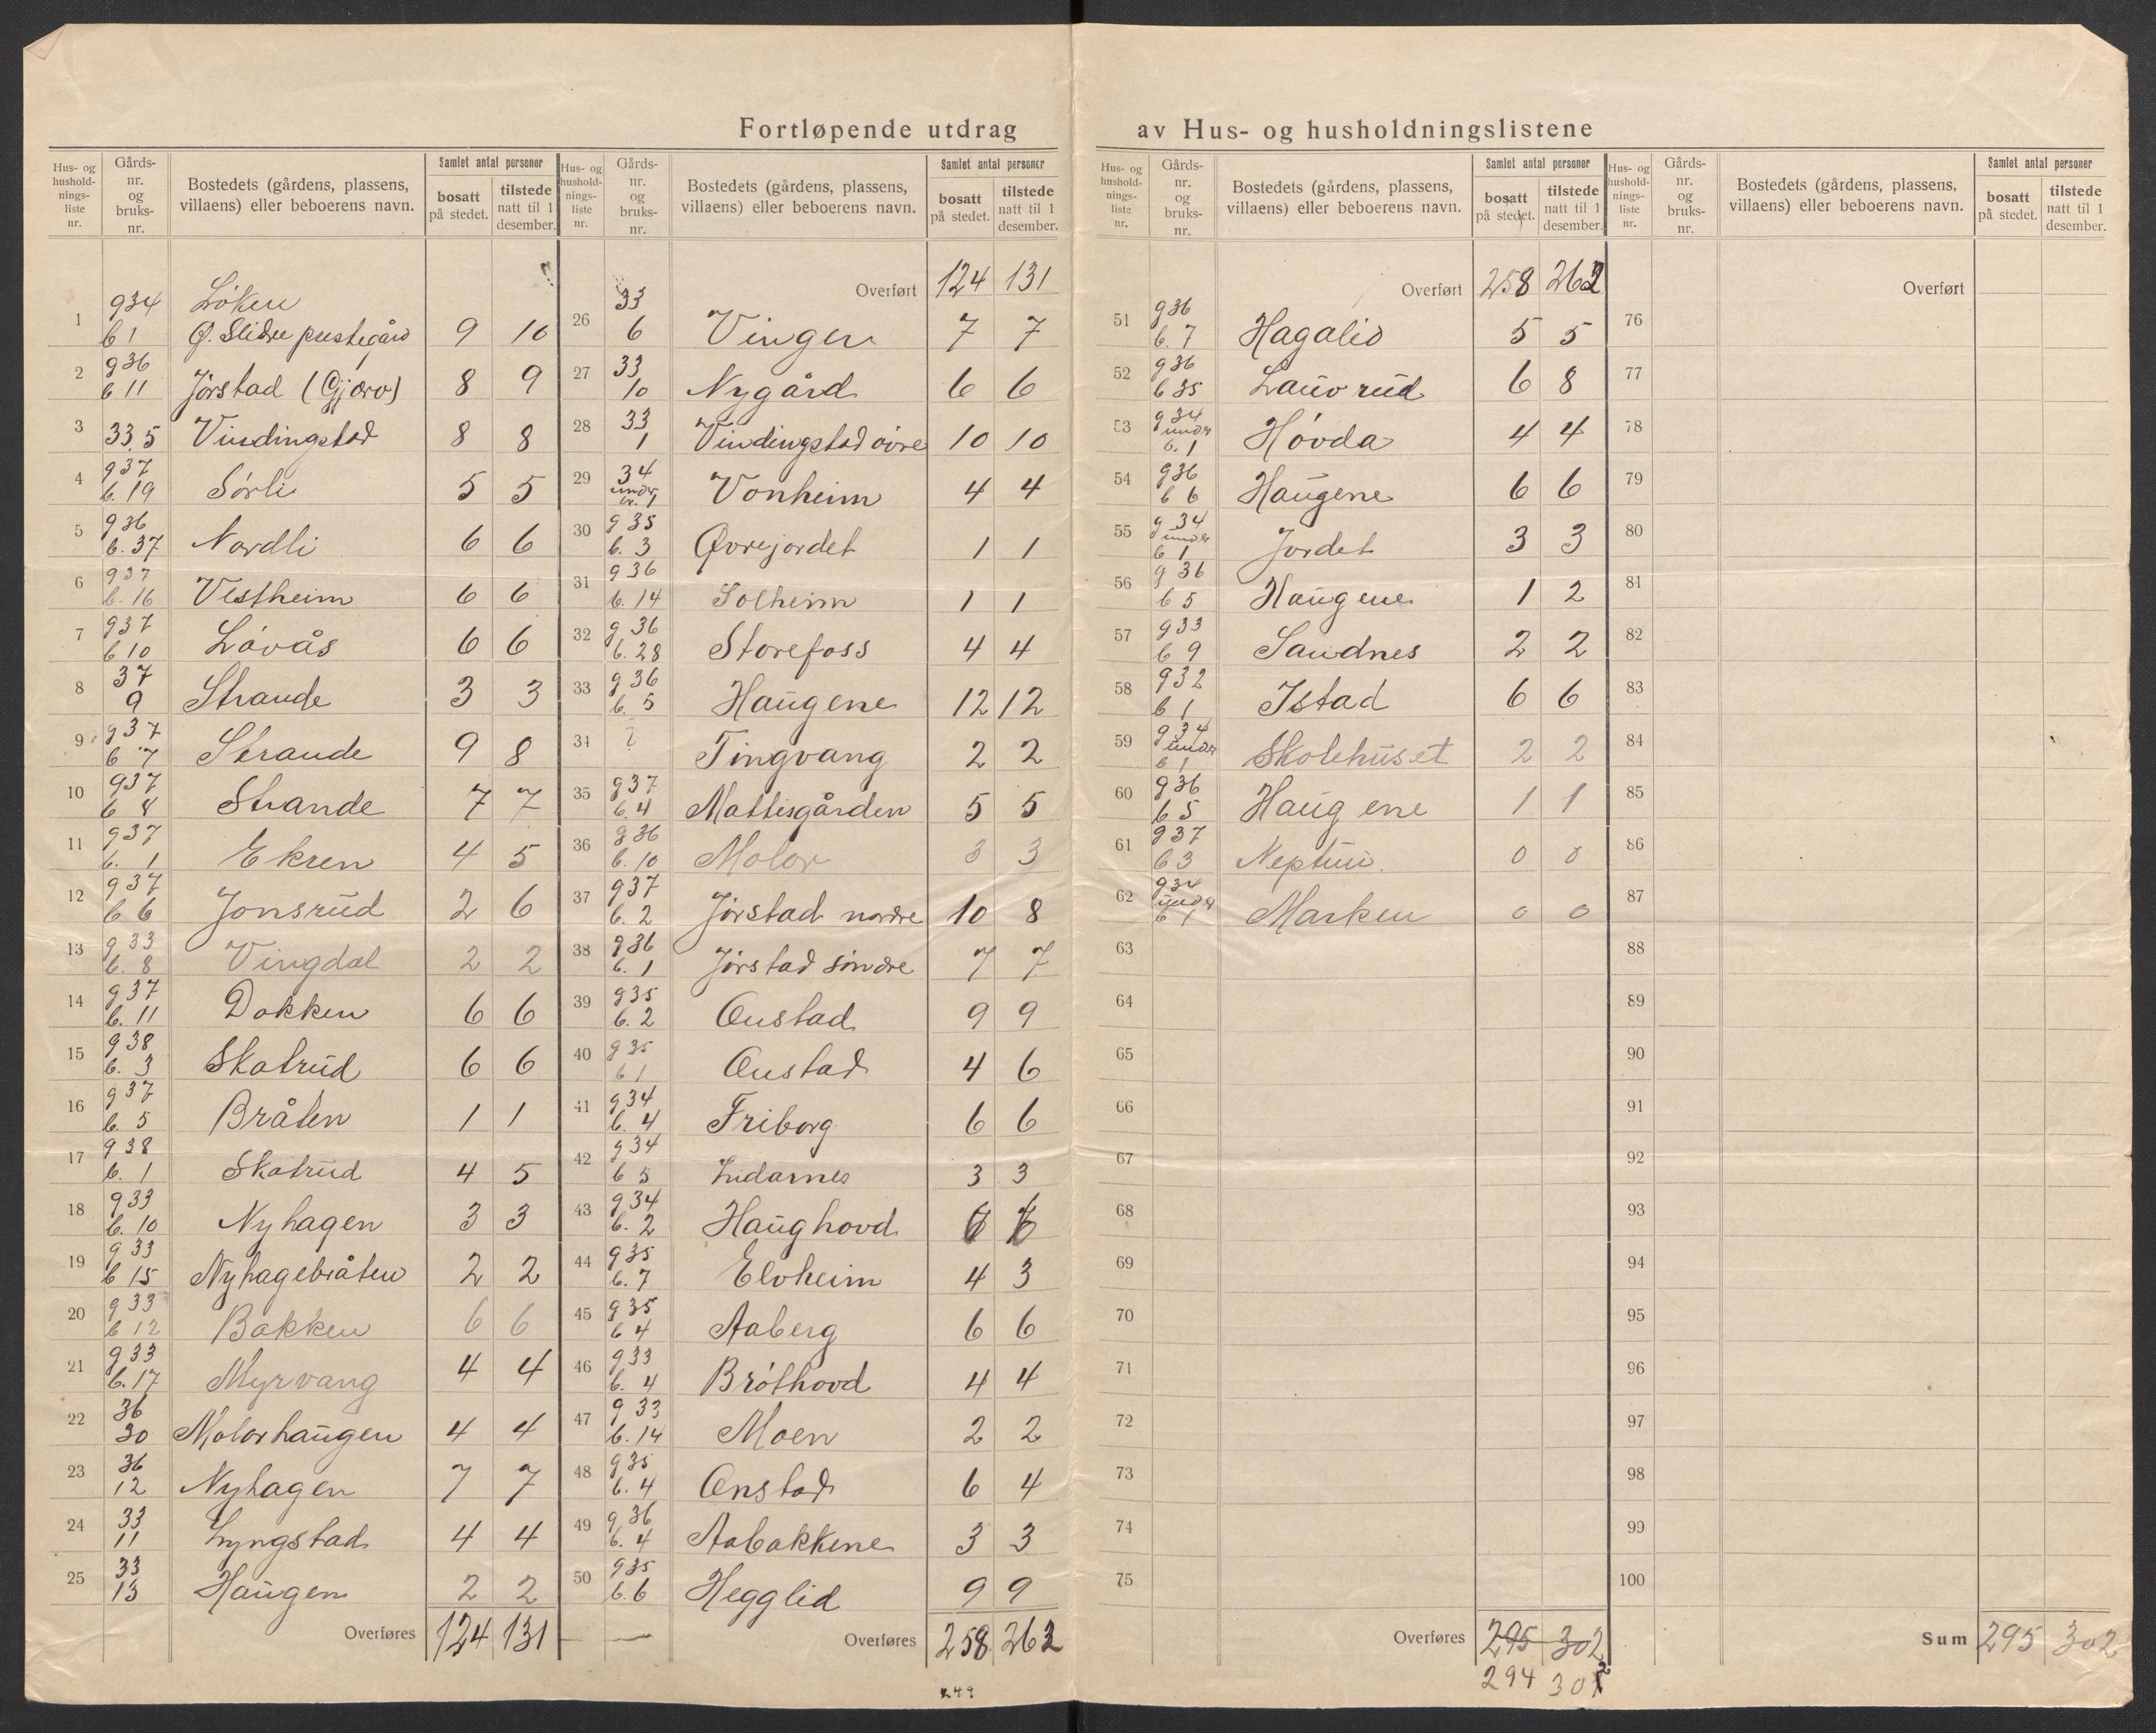 Fortløpende utdrag av Hus- og husholdningslistene
Hus- og husholdningsliste nr. | Gårds-nr. og bruks-nr. | Bostedets (gårdens, plassens, villaens) eller beboerens navn. | Samlet antal personer | bosatt på stedet. | tilstede natt til 1 desember.
1 | g 34 b 1 | Löken Ø. Slidre prestegård | 9 | 10
2 | g 36 b 11 | Jörstad (Gjærv) | 8 | 9
3 | 33,5 | Vindingstad | 8 | 8
4 | g 37 b. 19 | Sörli | 5 | 5
5 | g 36 b. 37 | Nordli | 6 | 6
6 | g 37 b. 16 | Vestheim | 6 | 6
7 | g 37 b 10 | Lövås | 6 | 6
8 | 37 9 | Strande | 3 | 3
9 | g 37 b 7 | Strande | 9 | 8
10 | g 37 b 8 | Strande | 7 | 7
11 | g 37 b. 1 | Ekren | 4 | 5
12 | g 37 b 6 | Jonsrud | 2 | 6
13 | g 33 b. 8 | Vingdal | 2 | 2
14 | g 37 b. 11 | Dokken | 6 | 6
15 | g 38 b. 3 | Skatrud | 6 | 6
16 | g 37 b. 5 | Bråten | 1 | 1
17 | g 38 b. 1 | Skatrud | 4 | 5
18 | g 33 b. 10 | Nyhagen | 3 | 3
19 | g 33 b 15 | Nyhagebråten | 2 | 2
20 | g 33 b 12 | Bakken | 6 | 6
21 | g 33 b. 17 | Myrvang | 4 | 4
22 | 36 30 | Molorhaugen | 4 | 4
23 | 36 12 | Nyhagen | 7 | 7
24 | 33 11 | Lyngstad | 4 | 4
25 | 33 13 | Haugen | 2 | 2
Overføres | 124 | 131
Hus- og husholdningsliste nr. | Gårds-nr. og bruks-nr. | Bostedets (gårdens, plassens, villaens) eller beboerens navn. | Samlet antal personer | bosatt på stedet. | tilstede natt til 1 desember.
Overført | 124 | 131
26 | 33 6 | Vingen | 7 | 7
27 | 33 10 | Nygård | 6 | 6
28 | 33 1 | Vindingstad övre | 10 | 10
29 | 34 under br. 1 | Vonheim | 4 | 4
30 | g 35 b. 3 | Øvrejordet | 1 | 1
31 | g 36 b. 14 | Solheim | 1 | 1
32 | g 36 b. 28 | Storefoss | 4 | 4
33 | g 36 b. 5 | Haugene | 12 | 12
34 | ? | Tingvang | 2 | 2
35 | g 37 b. 4 | Mattisgården | 5 | 5
36 | g 36 b. 10 | Molor | 3 | 3
37 | g 37 b. 2 | Jörstad nordre | 10 | 8
38 | g 36 b. 1 | Jörstad söndre | 7 | 7
39 | g 35 b. 2 | Onstad | 9 | 9
40 | g 35 b 1 | Onstad | 4 | 6
41 | g 34 b. 4 | Friborg | 6 | 6
42 | g 34 b 5 | Lidarnes | 3 | 3
43 | g 34 b. 2 | Haughovd
44 | g 35 b. 7 | Elvheim | 4 | 3
45 | g 35 b 4 | Aaberg | 6 | 6
46 | g 33 b. 4 | Bröthovd | 4 | 4
47 | g 33 b. 14 | Moen | 2 | 2
48 | g 35 b. 4 | Onstad | 6 | 4
49 | g 36 b. 4 | Aabakkene | 3 | 3
50 | g 35 b. 6 | Hegglid | 9 | 9
Overføres | 258 | 262
249
Hus- og husholdningsliste nr. | Gårds-nr. og bruks-nr. | Bostedets (gårdens, plassens, villaens) eller beboerens navn. | Samlet antal personer | bosatt på stedet. | tilstede natt til 1 desember.
Overført | 258 | 262
51 | g 36 b. 7 | Hagalid | 5 | 5
52 | g 36 b 35 | Lauvrud | 6 | 8
53 | g 34 under b. 1 | Hövda | 4 | 4
54 | g 36 b 6 | Haugene | 6 | 6
55 | g 34 under b 1 | Jordet | 3 | 3
56 | g 36 b 5 | Haugene | 1 | 2
57 | g 33 b 9 | Sandnes | 2 | 2
58 | g 32 b 1 | Istad | 6 | 6
59 | g 34 under b 1 | Skolehuset | 2 | 2
60 | g 36 b 5 | Haugene | 1 | 1
61 | g 37 b 3 | Neptun. | 0 | 0
62 | g 34 under b 1 | Marken | 0 | 0
63
64
65
66
67
68
69
70
71
72
73
74
75
Overføres | 295 | 302
294 | 302
Hus- og husholdningsliste nr. | Gårds-nr. og bruks-nr. | Bostedets (gårdens, plassens, villaens) eller beboerens navn. | Samlet antal personer | bosatt på stedet. | tilstede natt til 1 desember.
Overført
76
77
78
79
80
81
82
83
84
85
86
87
88
89
90
91
92
93
94
95
96
97
98
99
100
Sum | 295 | 302